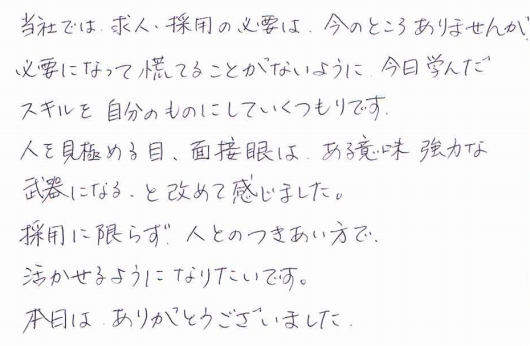 当社では、求人、採用の必要は、今のところありませんが、
必要になって慌てることがないように、今日学んだ
スキルを自分のものにしていくつもりです。
人を見極める目、面接眼は、ある意味強力な
武器になる、と改めて感じました。
採用に限らず、人とのつきあい方で、
活かせるようになりたいです。
本日は、ありがとうございました。